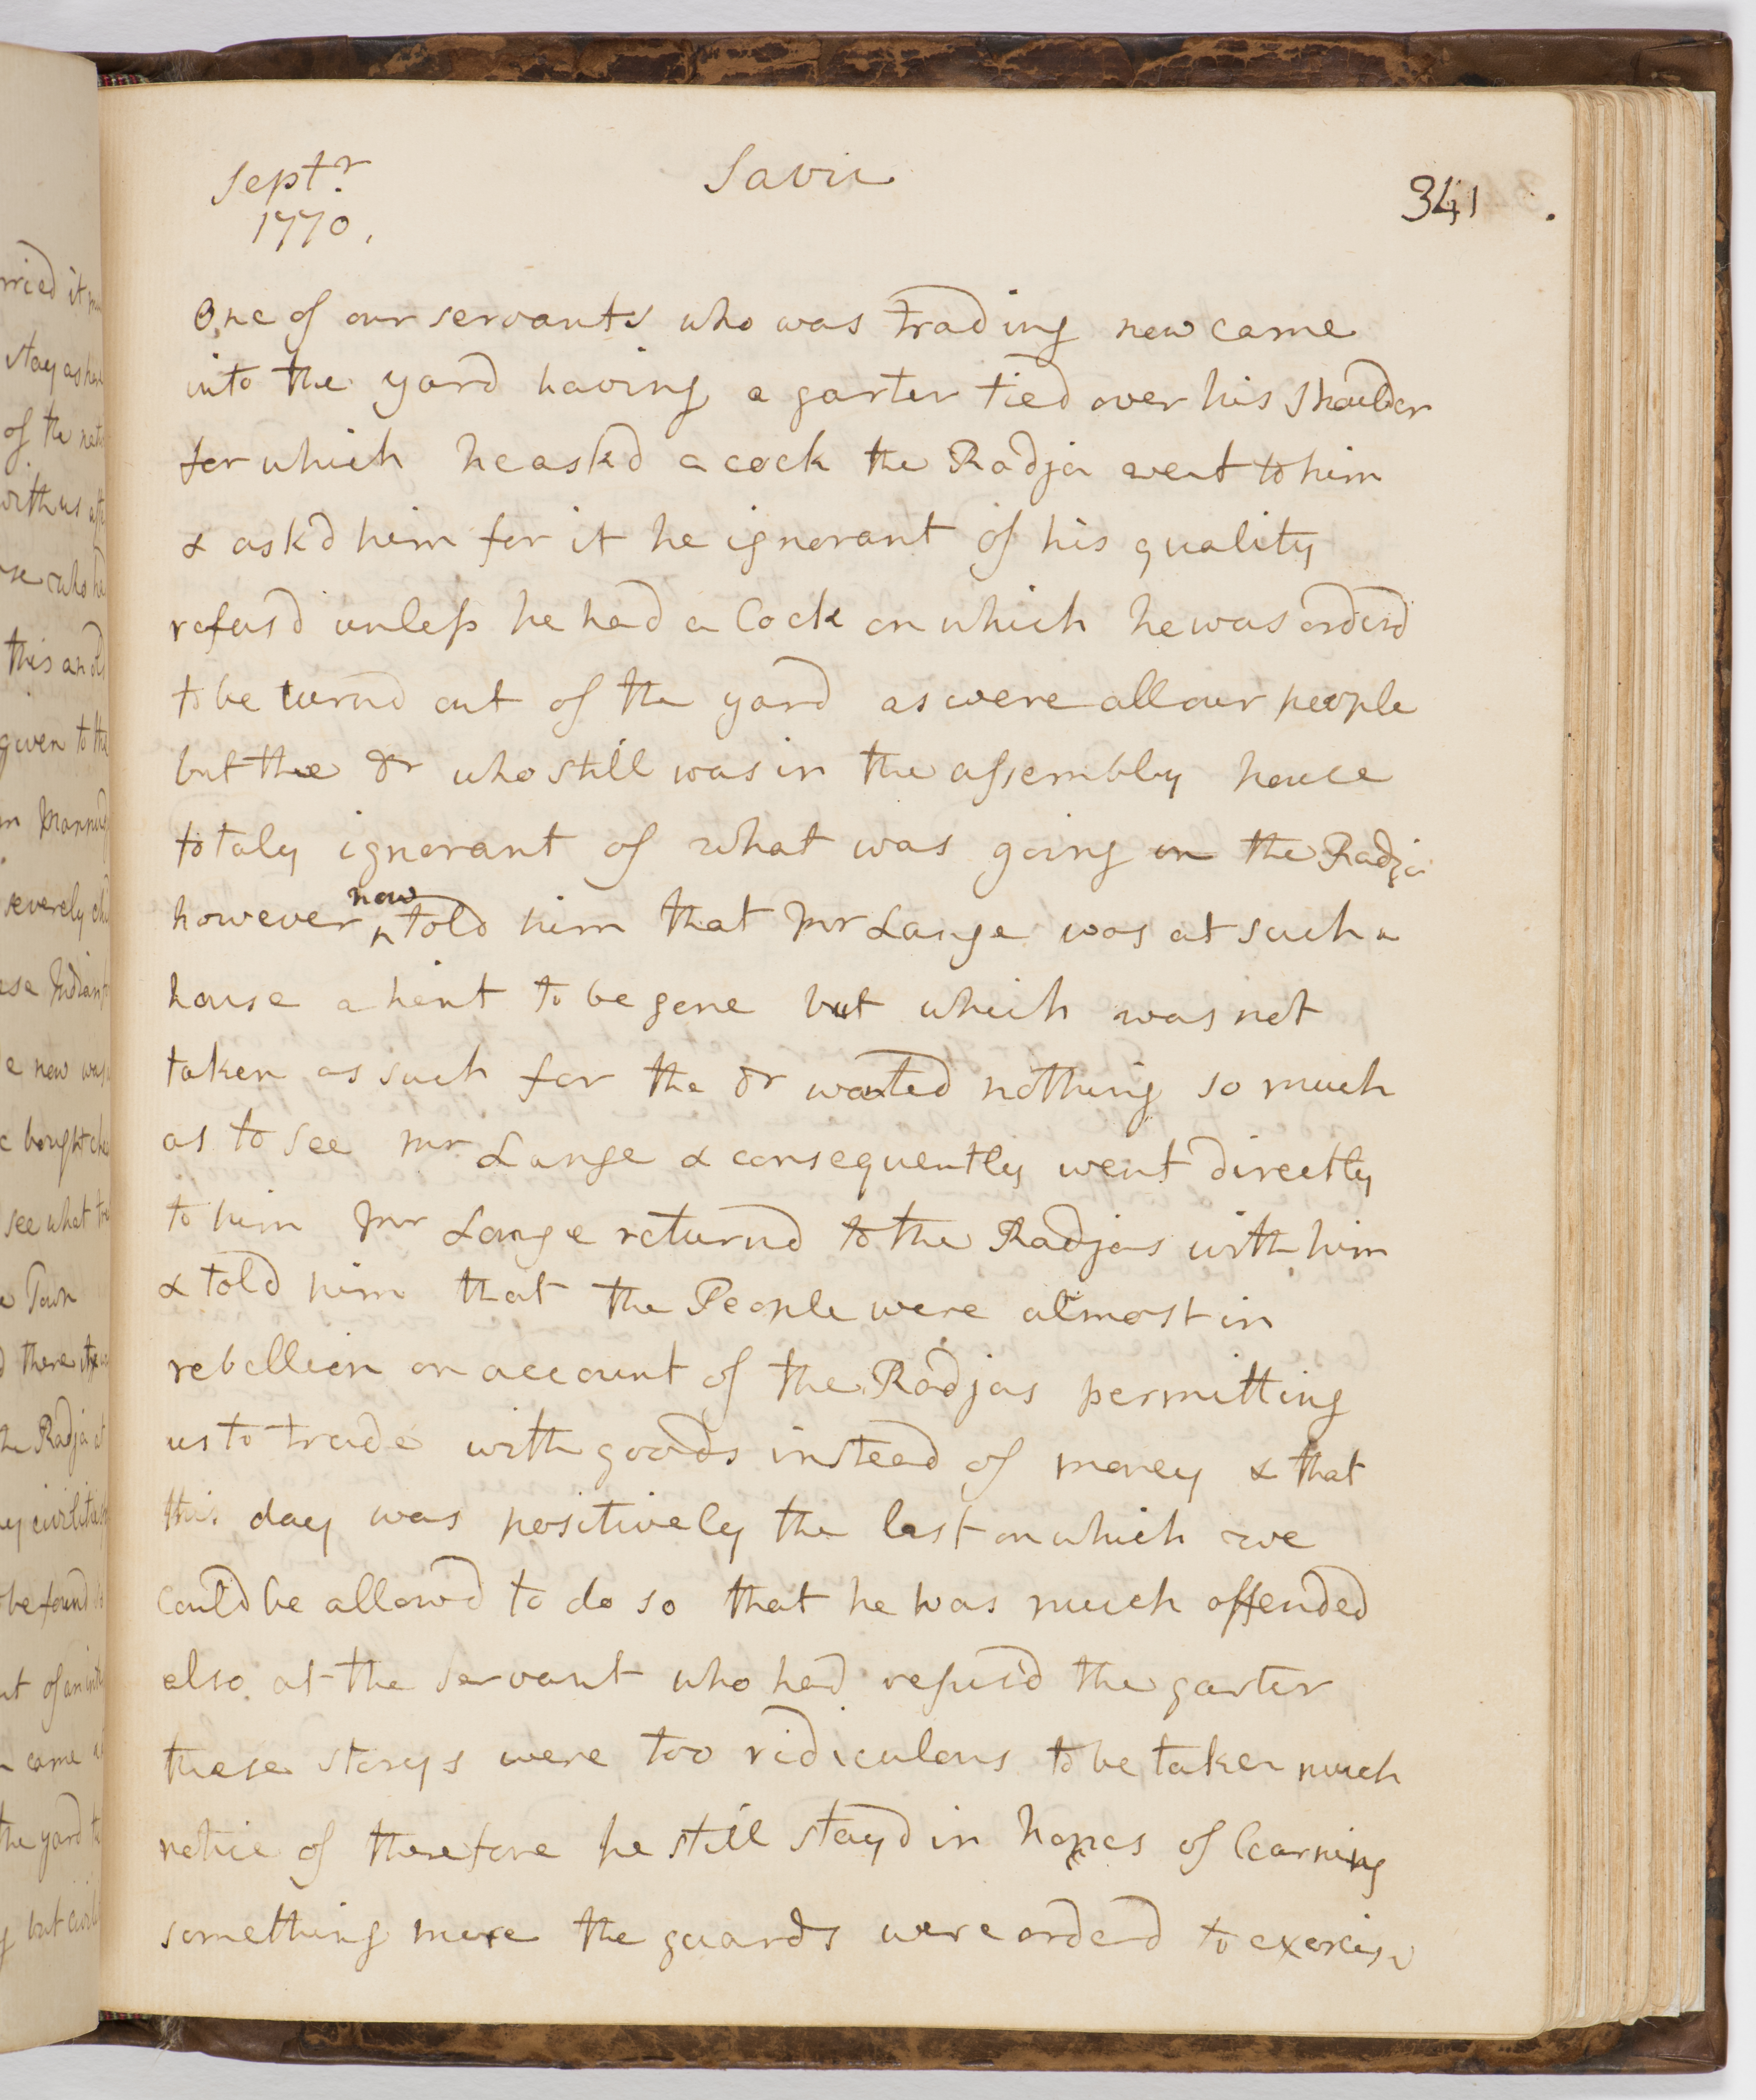 Septr.
1770.
Savu
341
One of our servants who was trading now came
into the yard having a garter tied over his shoulder
for which he askd a cock the Radja went to him
& askd him for it he ignorant of his quality
refusd unless he had a Cock on which he was orderd
to be turnd out of the yard as were all our people
but the Dr who still was in the assembly house
totaly ignorant of what was going on the Radja
however now told him that Mr Lange was at such a
house a hint to be gone but which was not
taken as such for the Dr wanted nothing so much
as to see Mr Lange & consequently went directly
to him Mr Lange returnd to the Radjas with him
& told him that the People were almost in
rebellion on account of the Radjas permitting
us to trade with goods instead of money & that
this day was positively the last on which we
could be allowd to do so that he was much offended
also at the servant who had refusd the garter
these storys were too ridiculous to be taken much
notice of therefore he still stayd in hopes of learning
something more the guards were orderd to exercise